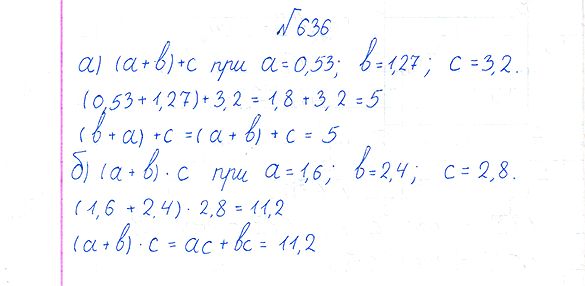 №636
а) (a+b)+c при a=0,53; b=1,27; c=3,2.
(0,53+1,27)+3,2=1,8+3,2=5
(b+a)+c=(a+b)+c=5
б) (a+b)·c при a=1,6; b=2,4; c=2,8.
(1,6+2,4)·2,8=11,2
(a+b)·c=ac+bc=11,2